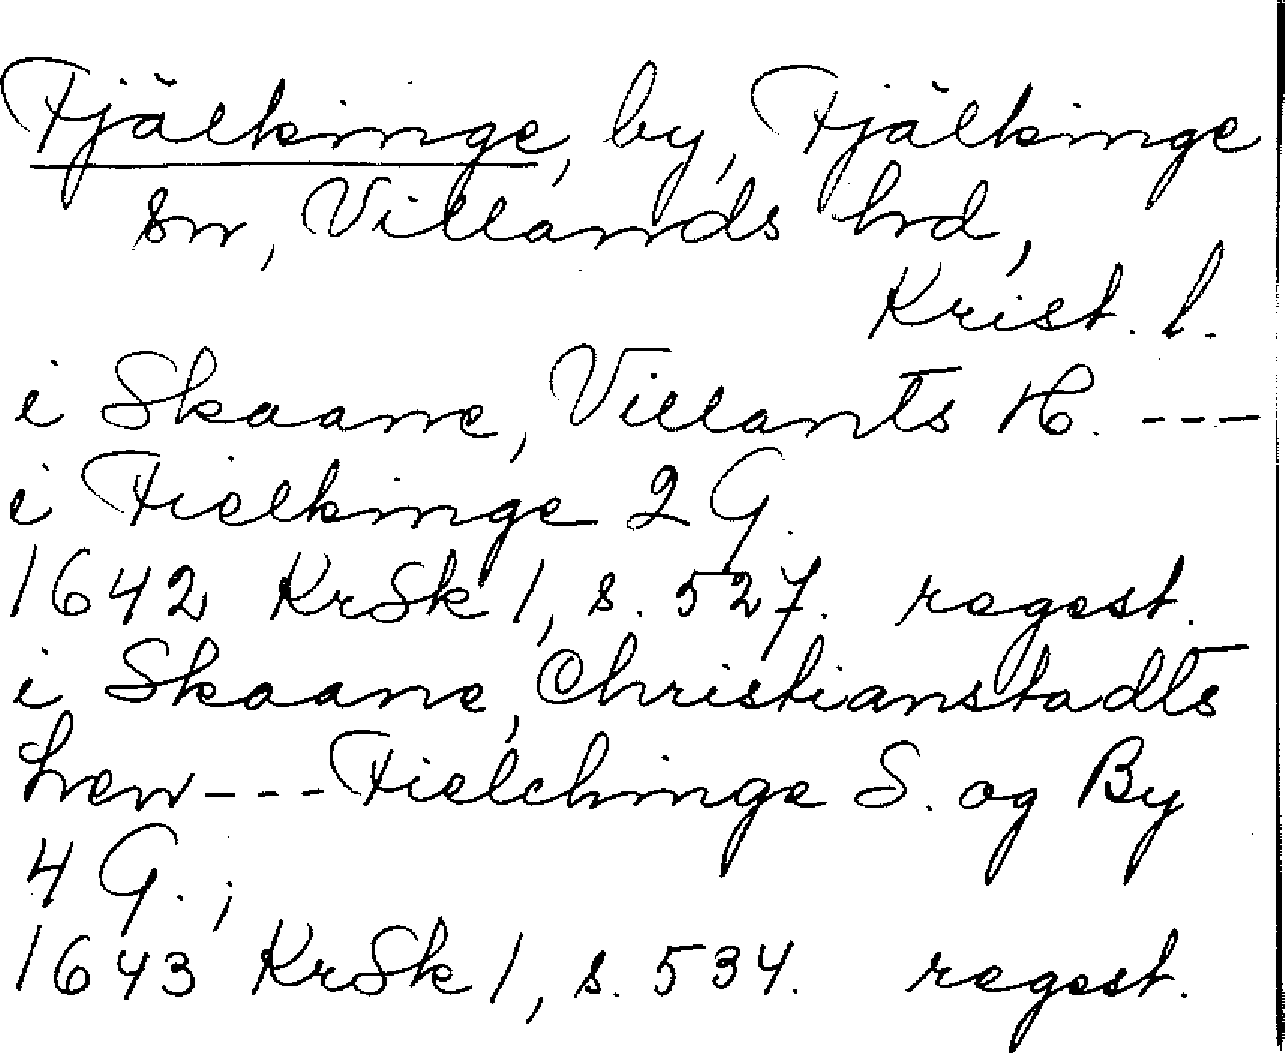 Fjälkinge, by, Fjälkinge
sn, Villands hrd,
Krist. l.
i Skaane, Villants H. ---
i Fielkinge 2 G.
1642 KrSk 1, s. 527. regest.
i Skaane, Christianstadts
Len --- Fielchinge S. og By
4 G.;
1643 KrSk 1, s. 534. regest.